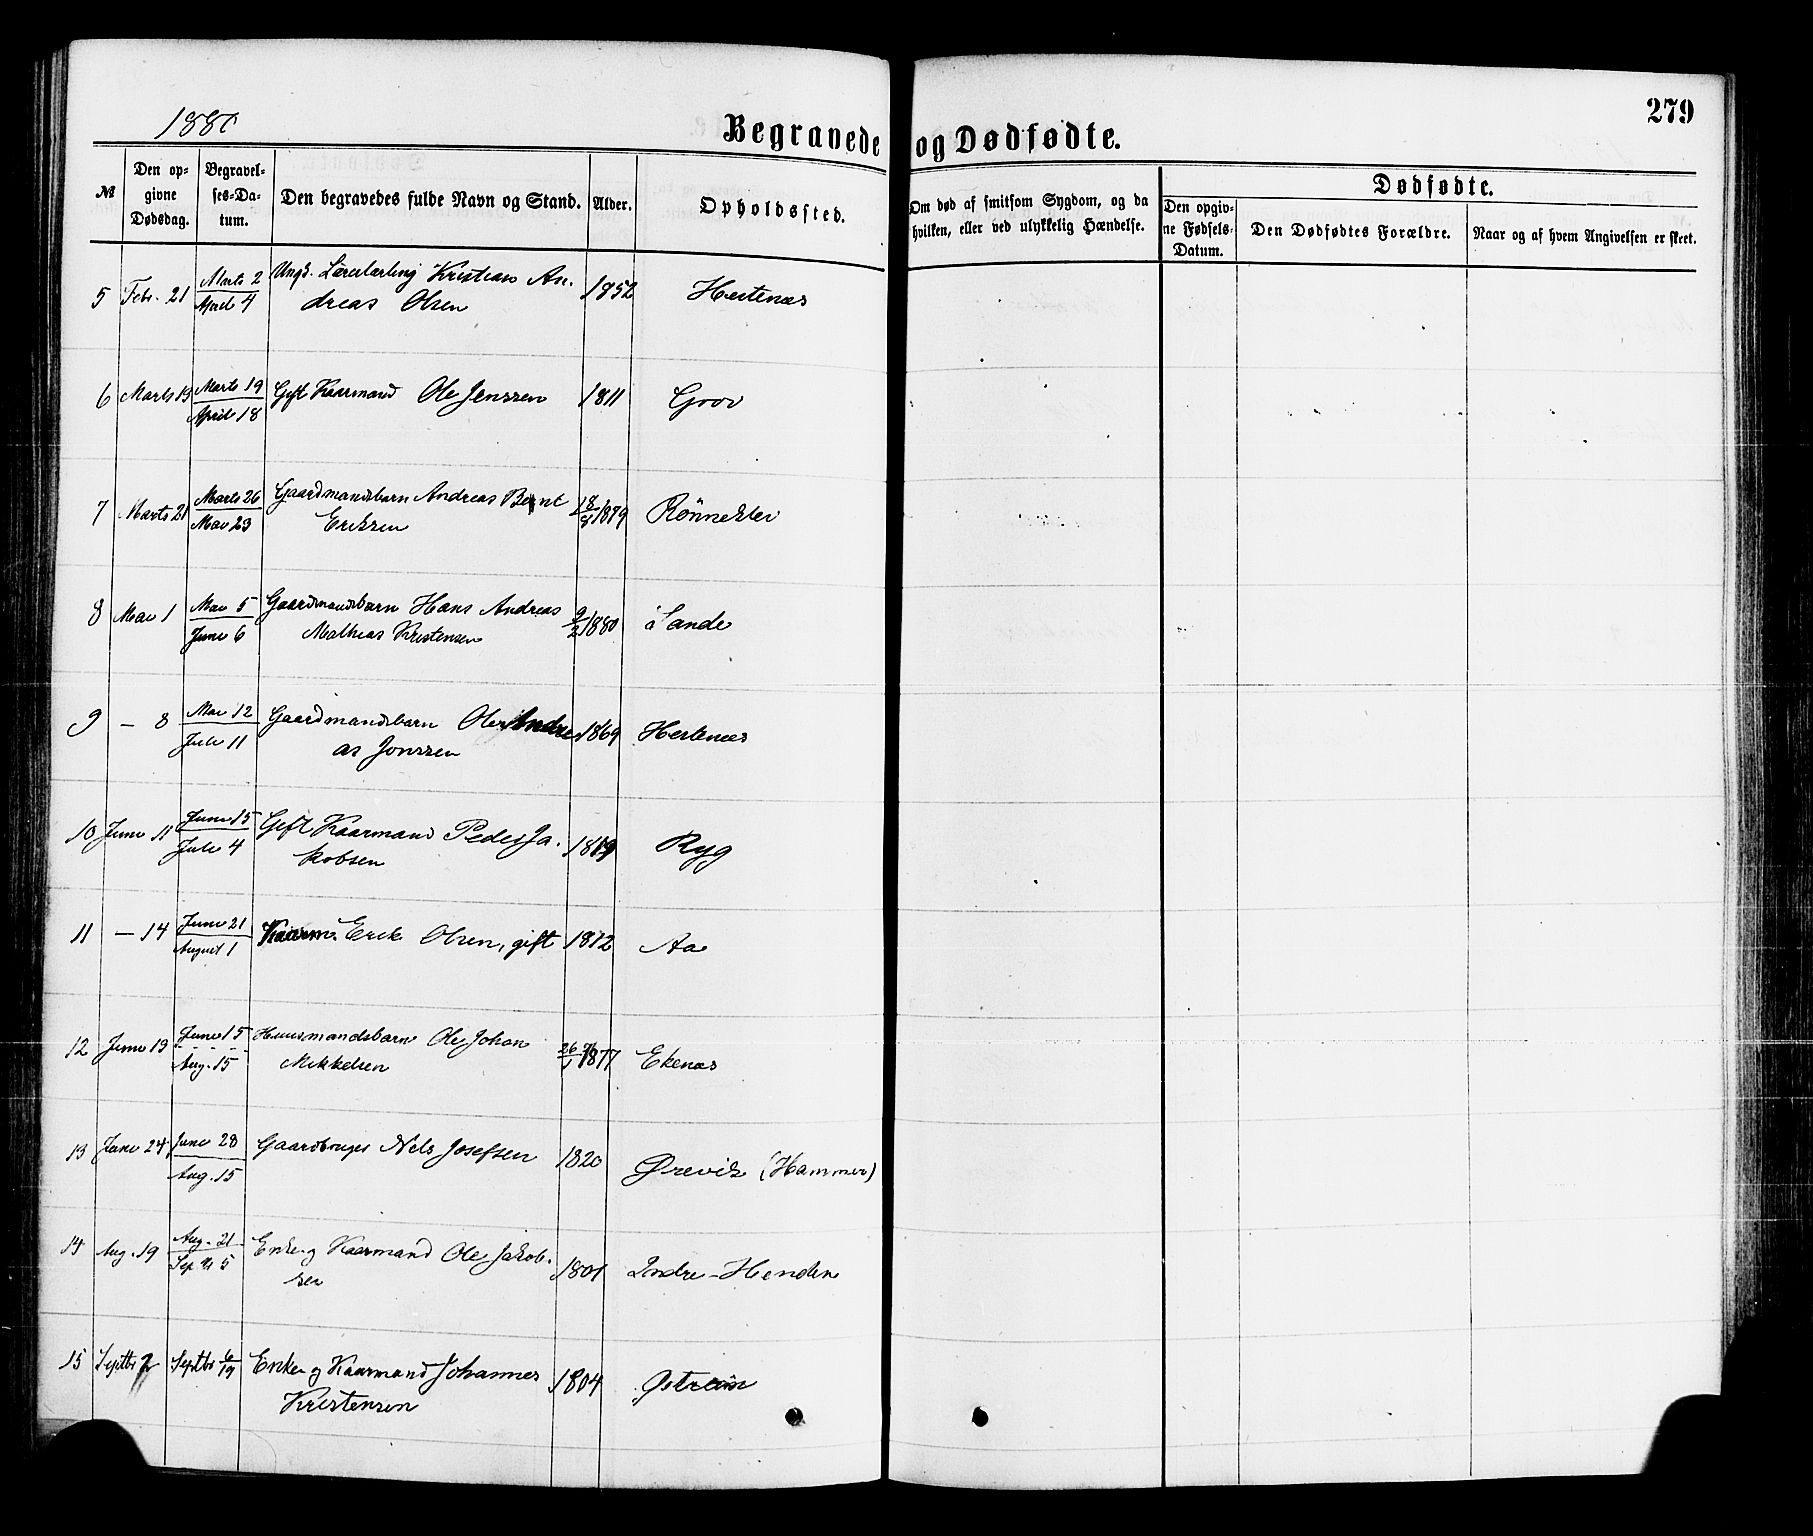 279
1880
Begravede og Dødfødte.
№
Den opgivne Dødsdag.
Begravelses-Datum.
Den begravedes fulde Navn og Stand.
Alder.
Opholdssted.
Om død af smitsom Sygdom, og da hvilken, eller ved ulykkelig Hændelse.
Dødfødte.
Den opgivne Fødsels-Datum.
Den Dødfødtes Forældre.
Naar og af hvem Angivelsen er skeet.
5 Febr. 21 Marts 2 Ungk. Kristian An- 1852 Hestenæs
April 4 dreas Olsen
6 Marts 13 Marts 19 Gift Kaarmand Ole Jenssen 1811 Grov
April 18
7 Marts 21 Marts 26 Gaardmandsbarn Andreas Bernt 18/8 1879 Rønneklev
Mai 23 Eriksen
8 Mai 1 Mai 5 Gaardmandsbarn Hans Andreas 9/2 1880 Sande
Juni 6 Mathias Kristensen
9 — 8 Mai 12 Gaardmandsbarn Ole Andre 1869 Hestenæs
Juli 11 as Jonssen
10 Juni 11 Juni 15 Gift Kaarmand Peder Ja- 1819 Ryg
Juli 4 kobsen
11 — 14 Juni 21 Kaarm. Erik Olsen, gift 1812 Aa
August 1
12 Juni 13 Juni 15 Huusmandsbarn Ole Johan 1877 Ekenæs
Aug. 15 Mikkelsen
13 Juni 24 Juni 28 Gaardbruger Nils Josefsen 1820 Ørevik (Hammer)
Aug. 15
14 Aug. 19 Aug. 21 Enke- og Kaarmand Ole Jakob- 1801 Indre-Henden
Septbr 5 sen
15 Septbr 2 Septbr 6/19 Enke- og Kaarmand Johannes 1804
Kristensen